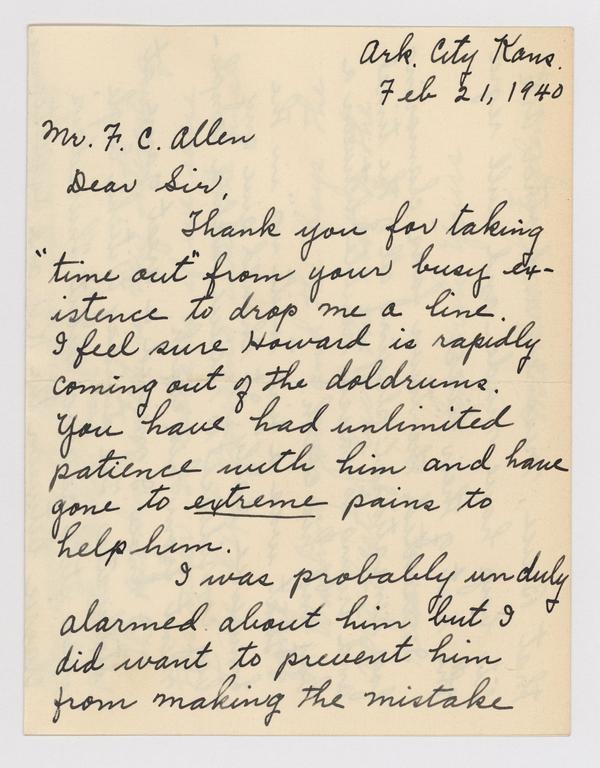 Ark. City Kans.
Feb 21, 1940
Mr. F. C. Allen
Dear Sir,
Thank you for taking
"time out" from your busy ex-
istence to drop me a line.
I feel sure Howard is rapidly
coming out of the doldrums.
You have had unlimited
patience with him and have
gone to extreme pains to
help him.
I was probably unduly
alarmed about him but I
did want to prevent him
from making the mistake